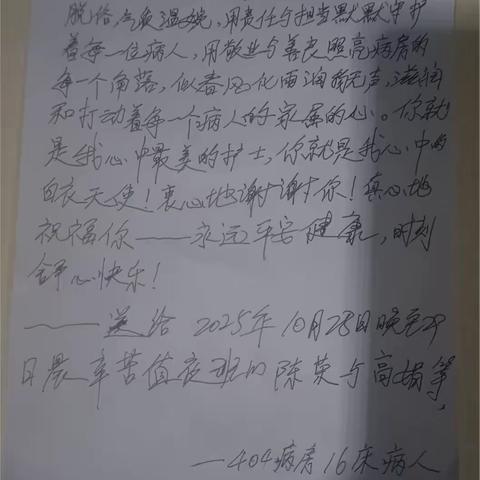 脱俗，气质温婉，用责任与担当默默守护
着每一位病人，用敬业与善良照亮病房的
每一个角落，似春风化雨润物无声，滋润
和打动着每一个病人的家属的心。你就
是我心中最美的护士，你就是我心中的
白衣天使！衷心地谢谢你！真心地
祝福你——永远平安健康，时刻
舒心快乐！
——送给2025年10月28日晚至29
日晨辛苦值夜班的陈英与高娟等，
—404病房16床病人